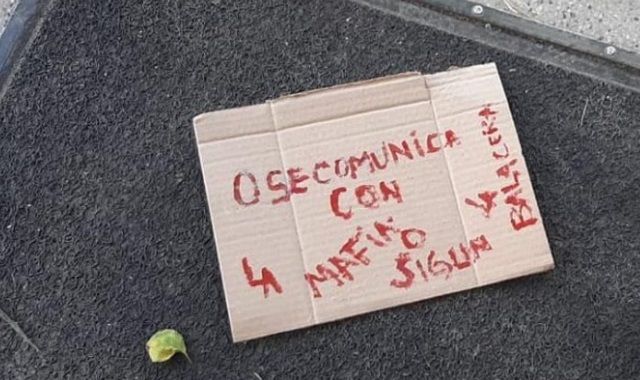 O SE COMUNICA
CON
4 MAFIA O
SIGUN 4
BALACERA